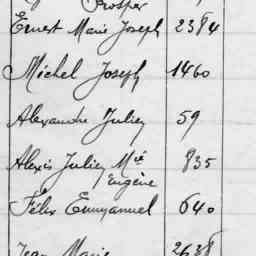 Prosper
Ernest Marie Joseph 2384
Michel Joseph 1460
Alexandre Julien 59
Alexis Julien Mie 835
Eugène
Félix Emmanuel 640
Jean Marie 2638